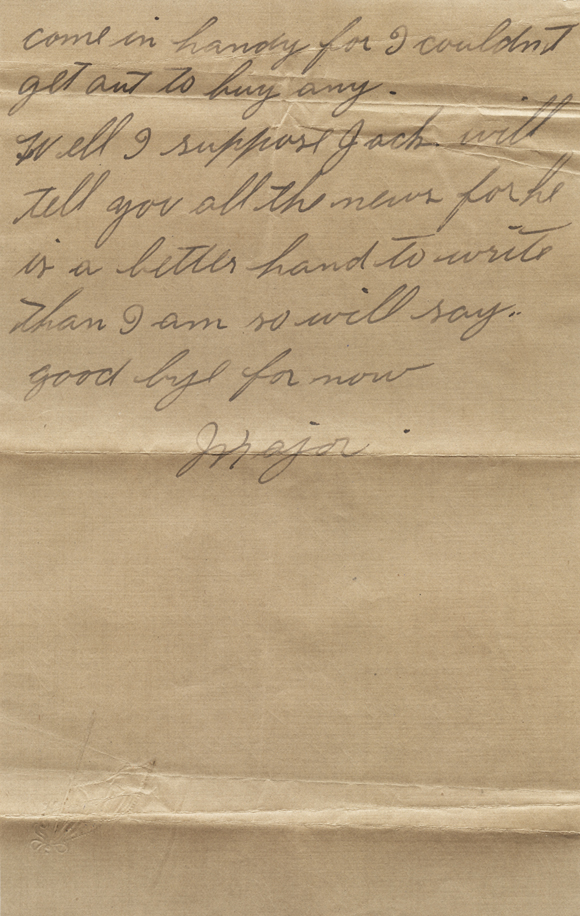 come in handy for I couldn't
get out to buy any.
Well I suppose Jack will
tell you all the news for he
is a better hand to write
than I am so will say..
good bye for now
J Major.